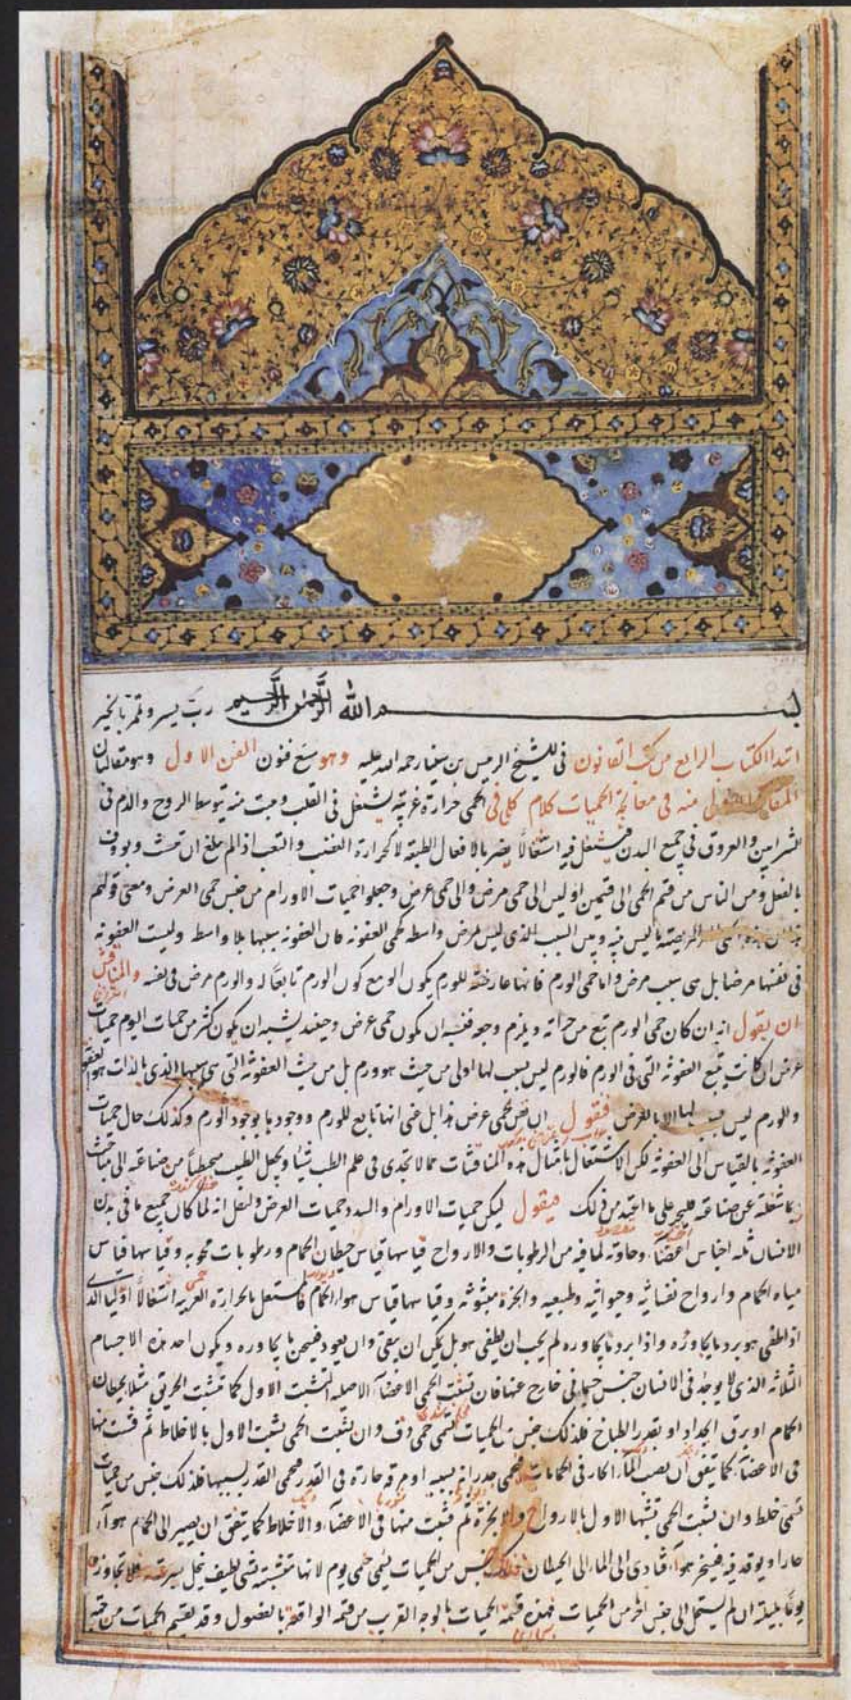 بسم الله الرحمن الرحيم رب يسر وتمم بالخير
ابتدا الكتاب الرابع من كتب القانون فى للشيخ الرئيس بن سينا رحمة الله عليه وهو سبع فنون الفن الاول وهو مقالتان
المقالة الاولى منه فى معالجة الحميات كلام كلى فى الحمى حرارة غريبة تشتعل فى القلب وتنبث منه بتوسط الروح والدم فى
الشرايين والعروق فى جميع البدن فتشتعل فيه اشتعالا يضر بالافعال الطبيعية لا كحرارة الغضب والتعب اذا لم يبلغ ان تتشبث وتووف
بالفعل ومن الناس من قسم الحمى الى قسمين اوليين الى حمى مرض والى حمى عرض وجعلوا حميات الاورام من جنس حمى العرض ومعنى قولهم
المرضية ما ليس بينه وبين السبب الذى ليس بمرض واسطة كحمى العفونة فان العفونة سببها بلا واسطة وليست العفونة
فى نفسها مرضا بل هى سبب مرض واما حمى الورم فانها عارضة للورم يكون الورم مع كون الورم تابعة له والورم مرض فى نفسه وللمناقش
ان يقول انه ان كان حمى الورم تتبع من حرارته ويلزم وجعه فيشبه ان يكون حمى عرض وحينئذ يشبه ان يكون كثير من حميات اليوم حميات
عرض وان كانت تتبع العفونة التى فى الورم فالورم ليس بسبب لها اولى من حيث هو ورم بل من حيث العفونة التى هى سببها الذى بالذات هو العفونة
والورم ليس سببا لها الا بالعرض فنقول لحمى عرض هذا بل عنى انها تابع للورم ووجودها بوجود الورم وكذلك حال حميات
العفونة بالقياس الى العفونة لكن الاشتغال بامثال هذه المناقشات مما لا تجدى فى علم الطب شيئا ويجعل الطبيب متخطيا من صناعته الى مباحث
ربما شغلته عن صناعته فليجر على ما اعتيد من ذلك فنقول ليكن حميات الاورام والسدد حميات العرض ولنقل انه لما كان جميع ما فى بدن
الانسان ثلثة اجناس اعضاء وحاوية لما فيه من الرطوبات والارواح قياسها قياس حيطان الحمام ورطوبات محوية وقياسها قياس
مياه الحمام وارواح نفسانية وحيوانية وطبيعية وابخرة مبثوثة وقياسها قياس هواء الحمام فالمشتعل بالحرارة الغريبة اشتعالا اوليا الذى
اذا طفى هو برد ما يجاوره واذا برد ما يجاوره لم يجب ان يطفى هو بل يمكن ان يبقى وان يعود فيسخن ما يجاوره ويكون احد هذه الاجسام
الثلاثة الذى لا يوجد فى الانسان جنس جسمانى خارج عنها فان تشبثت الحمى الاعضاء الاصلية التشبث الاول كما تتشبث الحريق مثلا بحيطان
الحمام او بزق الحداد او بقدر الطباخ فذلك جنس من الحميات تسمى حمى دق وان تشبثت الحمى تشبث الاول بالاخلاط ثم فشت منها
فى الاعضاء كما يتفق ان يصب الماء الحار فى الحمامات فتحمى جدرانه بسببه او مرقة حارة فى القدر فتحمى القدر بسببها فذلك جنس من حميات
تسمى خلط وان تشبثت الحمى تشبثها الاول بالارواح والابخرة ثم فشت منها فى الاعضاء والاخلاط كما يتفق ان يصير الى الحمام هواء
حار او يوقد فيه فيسخن هواه فتادى الى الماء الى الحيطان فذلك جنس من الحميات تسمى حمى يوم لانها متشبثة بشى لطيف يتحلل سريعة فلا تجاوز
يوما بليلته ان لم يستحل الى جنس اخر من الحميات فهذه قسمة الحميات بالوجه القريب من قسمة الواقعة بالفصول وقد يقسم الحميات من جهة